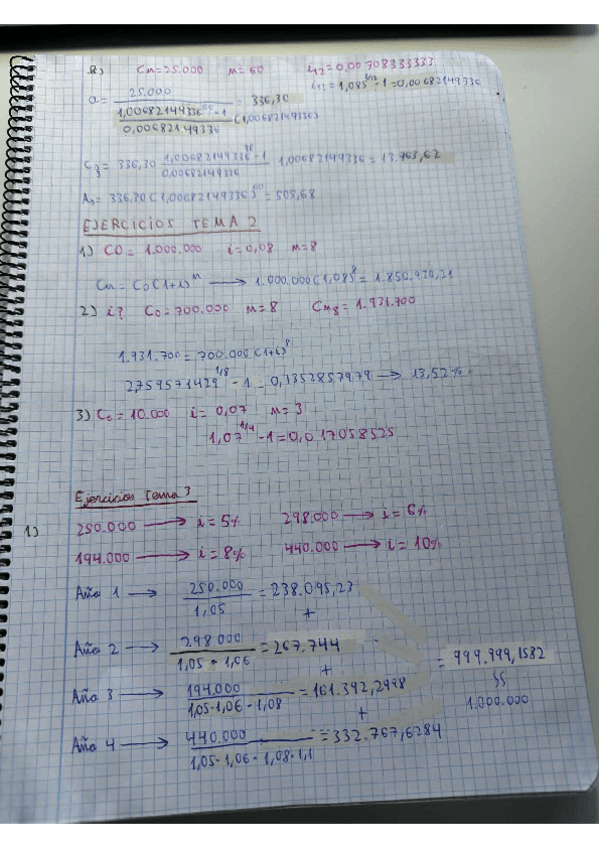 Cn=25.000 n=60 i12=0,00708333333
i12=1,085^1/12-1=0,00682149336
a= 25.000 / (1,00682149336^60-1 / 0,00682149336 (1,00682149336)) = 336,30
= 336,30 1,00682149336^36-1 / 0,00682149336 1,00682149336=13.763,62
= 336,30(1,00682149336)^60=505,68
EJERCICIOS TEMA 2
1) C0= 1.000.000 i=0,08 n=8
Cn=C0(1+i)^n → 1.000.000(1,08)^8= 1.850.930,21
2) i? C0=700.000 n=8 Cn8=1.931.700
1.931.700=700.000(1+i)^8
2,759571429^1/8-1=0,1352857979 → 13,52%
3) C0=10.000 i=0,07 n=3
1,07^1/4-1=0,017058525
Ejercicios tema 3
1) 250.000 → i=5% 298.000 → i=6%
194.000 → i=8% 440.000 → i=10%
Año 1 → 250.000 / 1,05 =238.095,23
+
Año 2 → 298.000 / 1,05·1,06 =267.744
+
= 999.999,1582
Año 3 → 194.000 / 1,05·1,06·1,08 =161.392,2998
1.000.000
+
Año 4 → 440.000 / 1,05·1,06·1,08·1,1 =332.767,6284